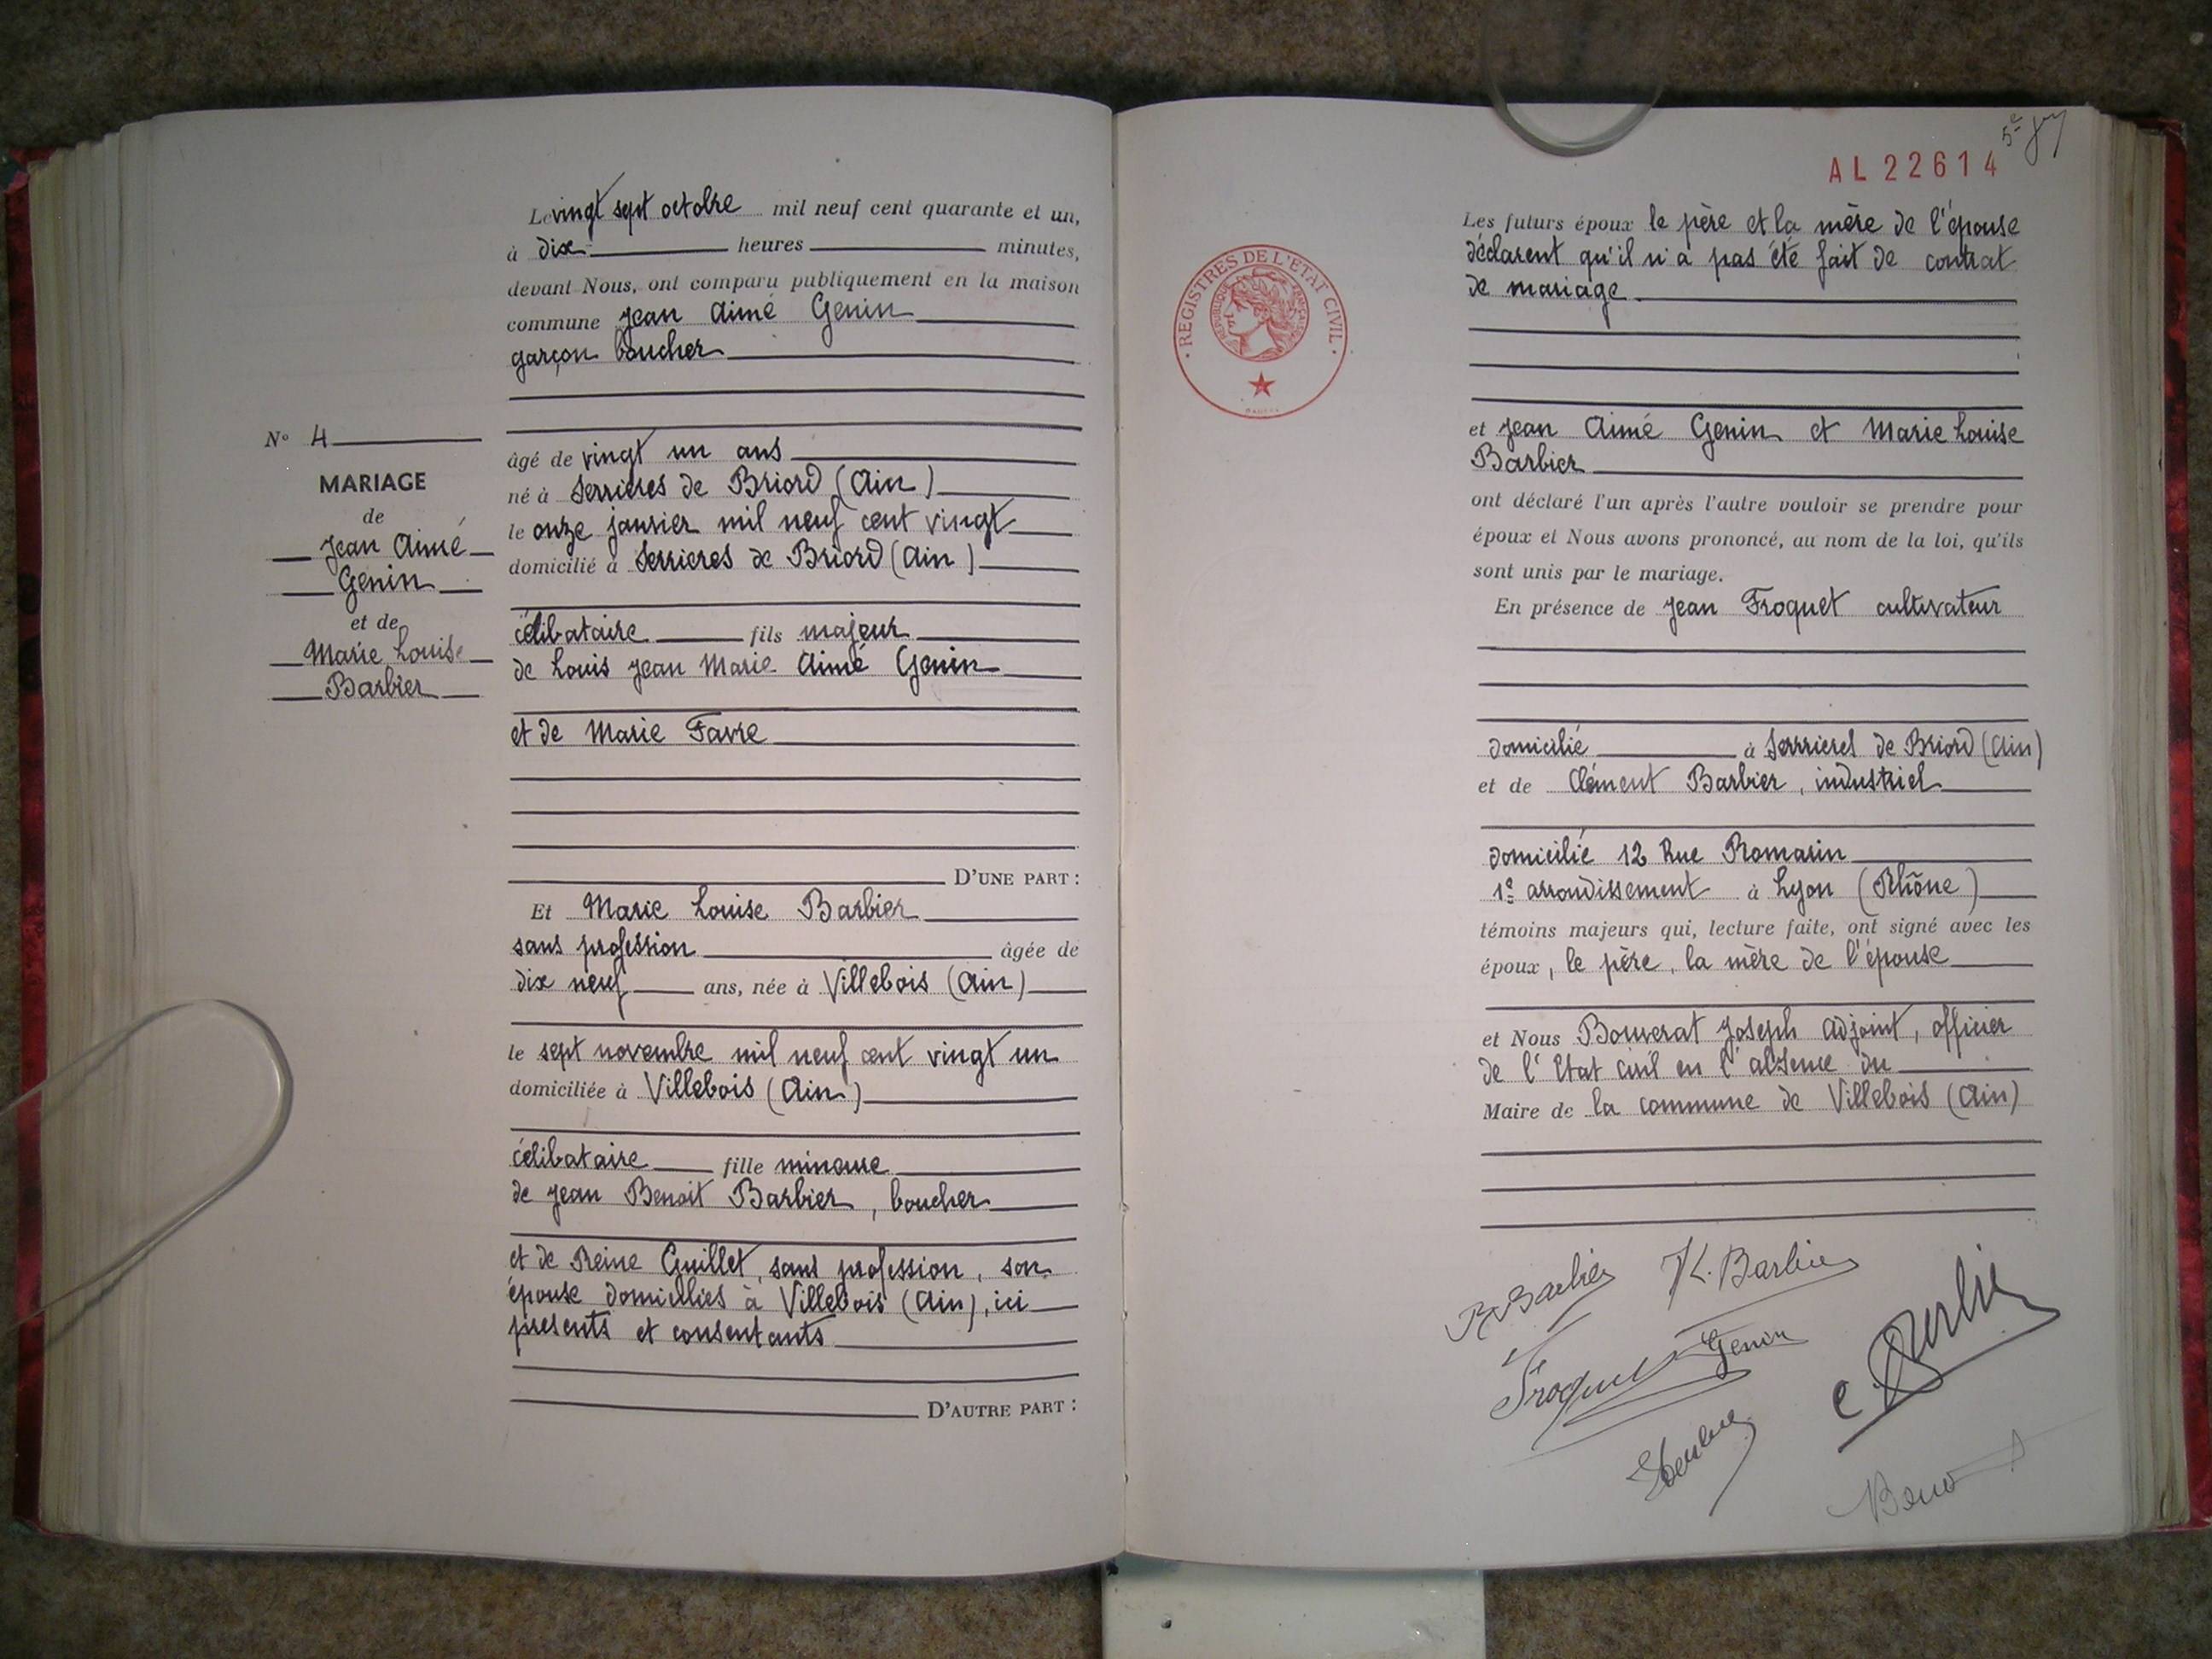 N° 4
MARIAGE
de
Jean Aimé
Genin
et de
Marie Louise
Barbier
Le vingt sept octobre mil neuf cent quarante et un,
à dix heures minutes,
devant Nous, ont comparu publiquement en la maison
commune Jean Aimé Genin
garçon boucher
âgé de vingt un ans
né à Serrières de Briord (Ain)
le onze janvier mil neuf cent vingt
domicilié à Serrieres de Briord (Ain)
célibataire fils majeur
de Louis Jean Marie Aimé Genin
et de Marie Favre
D'UNE PART :
Et Marie Louise Barbier
sans profession âgée de
dix neuf ans, née à Villebois (Ain)
le sept novembre mil neuf cent vingt un
domiciliée à Villebois (Ain)
célibataire fille mineure
de Jean Benoit Barbier, boucher
et de Reine Guillet, sans profession, son
épouse domiciliés à Villebois (Ain), ici
présents et consentants
D'AUTRE PART :
5e
AL22614
REGISTRES DE L'ETAT CIVIL
REPUBLIQUE FRANÇAISE
Les futurs époux le père et la mère de l'épouse
déclarent qu'il n'a pas été fait de contrat
de mariage
et Jean Aimé Genin et Marie Louise
Barbier
ont déclaré l'un après l'autre vouloir se prendre pour
époux et Nous avons prononcé, au nom de la loi, qu'ils
sont unis par le mariage.
En présence de Jean Froquet cultivateur
domicilié à Serrieres de Briord (Ain)
et de Clément Barbier, industriel
domicilié 12 Rue Romarin
1e arrondissement à Lyon (Rhône)
témoins majeurs qui, lecture faite, ont signé avec les
époux, le père, la mère de l'épouse
et Nous Bouverat Joseph adjoint, officier
de l'Etat civil en l'absence du
Maire de la commune de Villebois (Ain)
R Barbier K. Barbier
Froquet Genin
C. Barbier